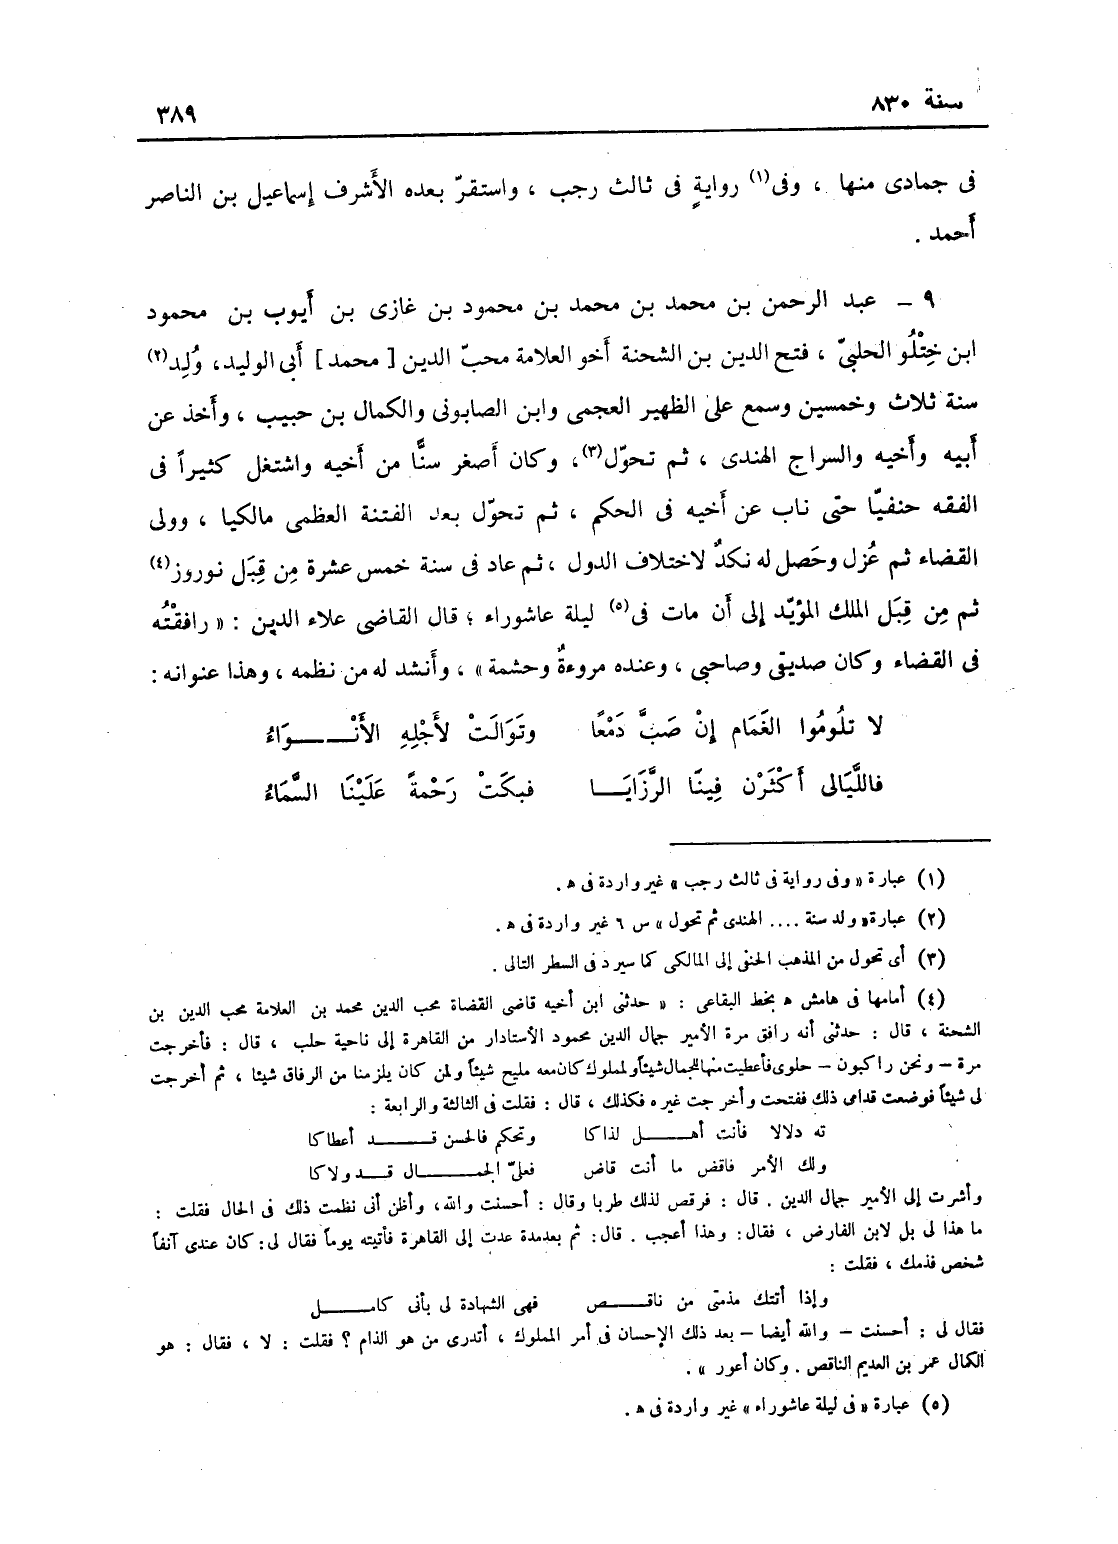 سنة ٨٣٠
٣٨٩
فى جمادى منها ، وفى(١) روايةٍ فى ثالث رجب ، واستقرّ بعده الأَشرف إسماعيل بن الناصر
أَحمد .
٩ - عبد الرحمن بن محمد بن محمد بن محمود بن غازى بن أَيوب بن محمود
ابن خِتْلُو الحلبيّ ، فتح الدين بن الشحنة أَخو العلامة محبّ الدين [ محمد ] أَبى الوليد، وُلِد(٢)
سنة ثلاث وخمسين وسمع على الظهير العجمى وابن الصابونى والكمال بن حبيب ، وأَخذ عن
أَبيه وأَخيه والسراج الهندى ، ثم تحوّل(٣)، وكان أَصغر سنًّا من أَخيه واشتغل كثيراً فى
الفقه حنفيًّا حتى ناب عن أَخيه فى الحكم ، ثم تحوّل بعد الفتنة العظمى مالكيا ، وولى
القضاء ثم عُزل وحَصل له نكدٌ لاختلاف الدول ، ثم عاد فى سنة خمس عشرة مِن قِبَل نوروز(٤)
ثم مِن قِبَل الملك المؤيّد إلى أَن مات فى(٥) ليلة عاشوراء ؛ قال القاضى علاء الدين : « رافقْتُه
فى القضاء وكان صديقى وصاحبى ، وعنده مروءةٌ وحشمة » ، وأَنشد له من نظمه ، وهذا عنوانه :
لا تلُومُوا الغَمَام إنْ صَبَّ دَمْعًا وتَوَالَتْ لأَجْلِهِ الأَنْــــوَاءُ
فاللَّيَالى أَكْثَرْن فِينَا الرَّزَايَــا فبكَتْ رَحْمةً عَلَيْنَا السَّمَاءُ
(١) عبارة « وفى رواية فى ثالث رجب » غير واردة فى ه .
(٢) عبارة « ولد سنة .... الهندى ثم تحول » س ٦ غير واردة فى ه .
(٣) أى تحول من المذهب الحنفى إلى المالكى كما سيرد فى السطر التالى .
(٤) أمامها فى هامش ه بخط البقاعى : « حدثنى ابن أخيه قاضى القضاة محب الدين محمد بن العلامة محب الدين بن
الشحنة ، قال : حدثنى أنه رافق مرة الأمير جمال الدين محمود الأستادار من القاهرة إلى ناحية حلب ، قال : فأخرجت
مرة – ونحن راكبون – حلوى فأعطيت منها للجمال شيئاً ولمملوك كان معه مليح شيئاً ولمن كان يلزمنا من الرفاق شيئا ، ثم أخرجت
لى شيئاً فوضعت قدامى ذلك ففتحت وأخرجت غيره فكذلك ، قال : فقلت فى الثالثة والرابعة :
ته دلالا فأنت أهـــل لذاكا وتحكم فالحسن قـــد أعطاكا
ولك الأمر فاقض ما أنت قاض فعلىّ الجمـــال قـد ولاكا
وأشرت إلى الأمير جمال الدين . قال : فرقص لذلك طربا وقال : أحسنت والله، وأظن أنى نظمت ذلك فى الحال فقلت :
ما هذا لى بل لابن الفارض ، فقال: وهذا أعجب . قال: ثم بعدمدة عدت إلى القاهرة فأتيته يوماً فقال لى: كان عندى آنفاً
شخص فذمك ، فقلت :
وإذا أتتك مذمتى من ناقـــص فهى الشهادة لى بأنى كامـــل
فقال لى : أحسنت – والله أيضا – بعد ذلك الإحسان فى أمر المملوك ، أتدرى من هو الذام ؟ فقلت : لا ، فقال : هو
الكمال عمر بن العديم الناقص . وكان أعور » .
(٥) عبارة « فى ليلة عاشوراء » غير واردة فى ه .